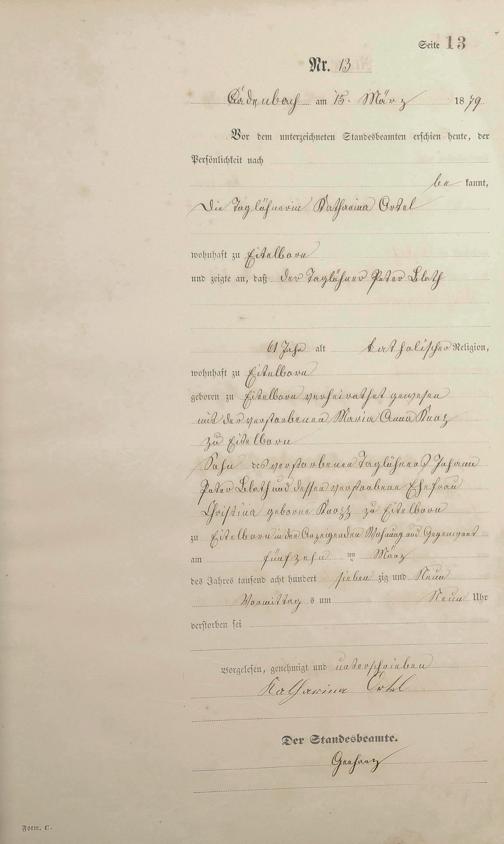 Seite 13
Nr. 13
Cadenbach am 15. März 1879.
Vor dem unterzeichneten Standesbeamten erschien heute, der
Persönlichkeit nach
be kannt,
die Taglöhnerin Katharina Ortel
wohnhaft zu Eitelborn
und zeigte an, daß der Taglöhner Peter Bloth
61 Jahr alt katholischer Religion,
wohnhaft zu Eitelborn
geboren zu Eitelborn verheirathet gewesen
mit der verstorbenen Maria Anna
zu Eitelborn
Sohn des verstorbenen Taglöhners Johann
Peter Bloth und dessen verstorbene Ehefrau
Christina geborne zu Eitelborn
zu Eitelborn in der Anzeigenden Wohnung und Gegenwart
am fünfzehn ten März
des Jahres tausend acht hundert sieben zig und Neun
Vormittag s um Neun Uhr
verstorben sei
Vorgelesen, genehmigt und unterschrieben
Katharina Ortel
Der Standesbeamte.
Form. C.